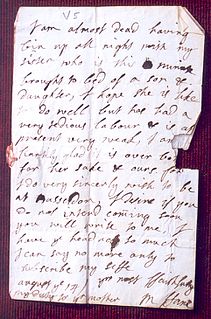 V5
I am almost dead having
bin up all night with my
sister who is this minute
brought to bed of a son &
daughter, I hope she is like
to do well but has had a
very tedious labour & is at
present very weak, I am
hartily glad it is over both
for her sake & ours for
I do very sincerly wish to be
at I desire if you
do not intend coming soon
you will write to me. I
have head ach so much
I can say no more only to
subscribe my selfe
august ye 19 yor most ffaithfully
my duty to yor mother M